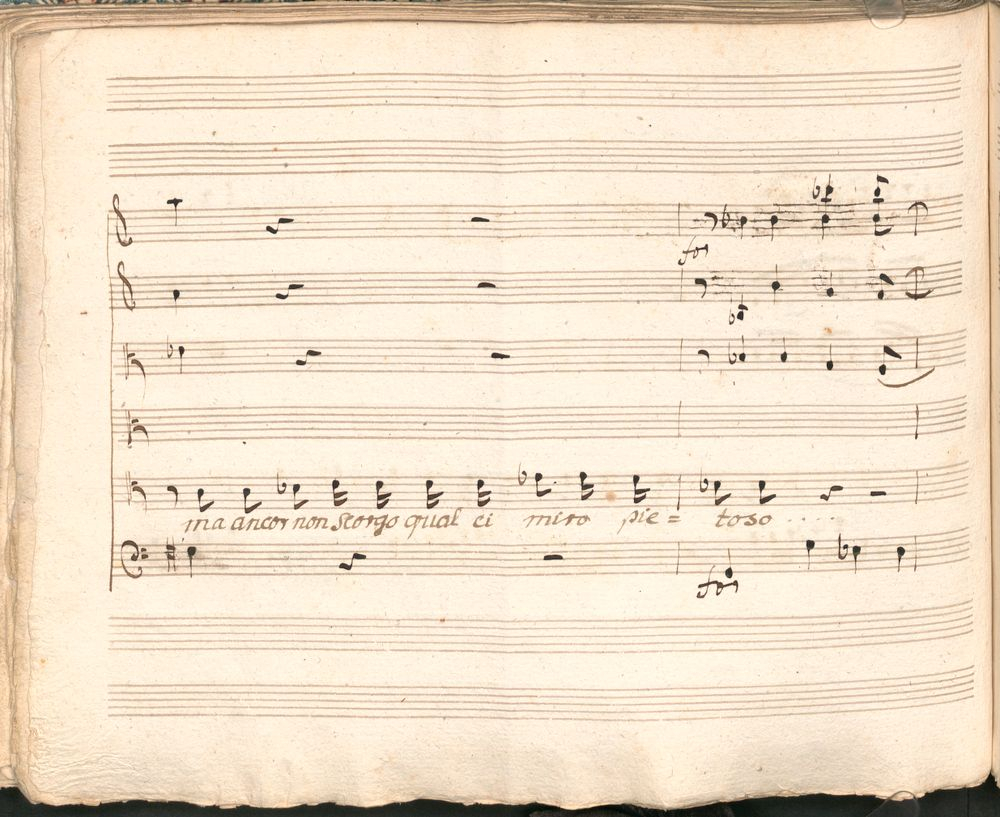 for
ma ancor non scorgo qual ei miro pie = toso . . . .
for